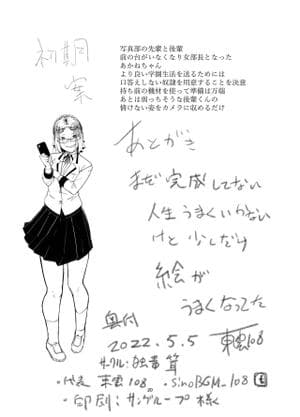 初期案
写真部の先輩と後輩
前の台がいなくなり女部長となった
あかねちゃん
より良い学園生活を送るためには
口答えしない奴隷を用意することを決意
持ち前の機材を使って準備は万端
あとは弱っちそうな後輩くんの
情けない姿をカメラに収めるだけ
あとがき
まず完成してない
人生うまくいかない
けど少しだけ
絵が
うまくなってた
東雲108
奥付
2022.5.5
サークル:独毒茸
・代表 東雲108。・SinoBGM_108
・印刷:サングループ様